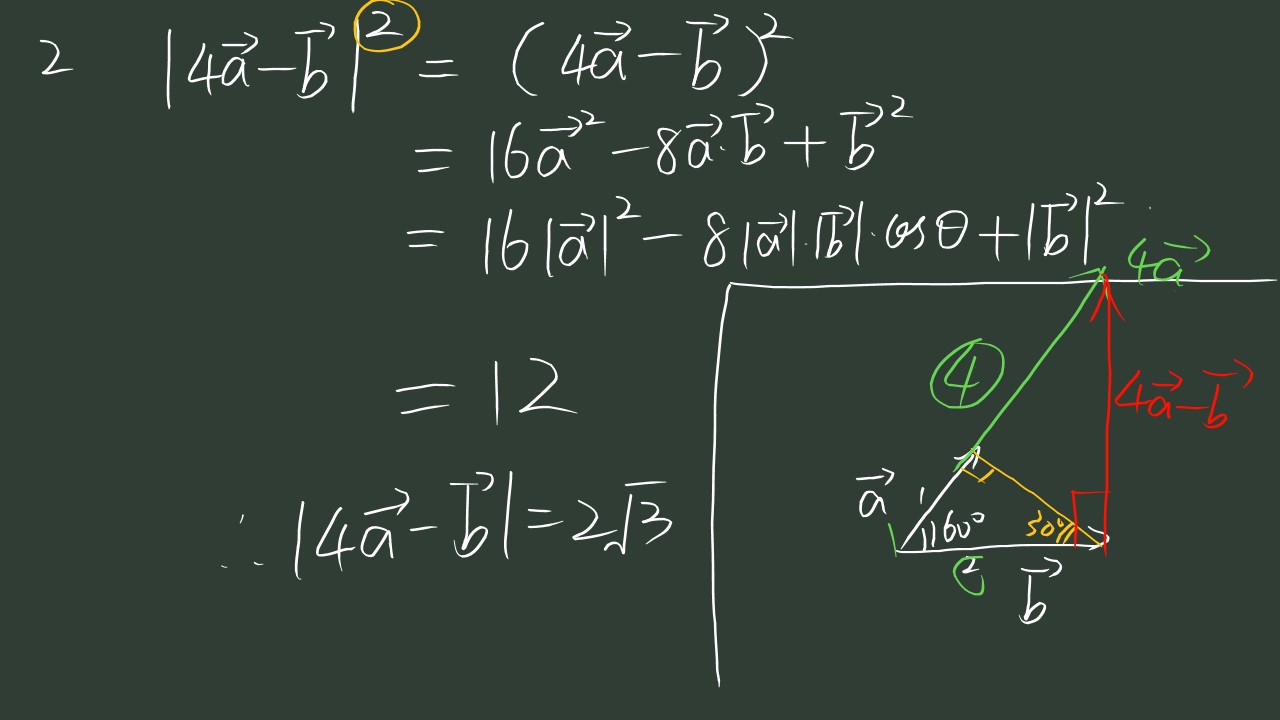 2 |4a⃗-b⃗|² = (4a⃗-b⃗)²
= 16a⃗² - 8a⃗·b⃗ + b⃗²
= 16|a⃗|² - 8|a⃗|·|b⃗|·cosθ + |b⃗|²
= 12
∴ |4a⃗-b⃗| = 2√3
4a⃗
④
4a⃗-b⃗
a⃗
1
60°
30°
2
b⃗